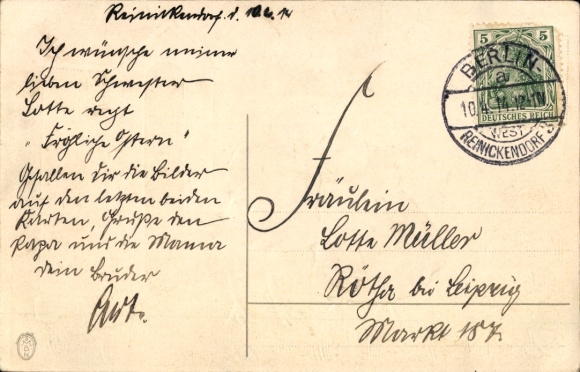 Reinickendorf d. 10.4.14
Ich wünsche meiner
lieben Schwester
Lotte recht
"Fröhliche Ostern"
Gefallen dir die Bilder
auf den letzten beiden
Karten, Grüße den
Papa und die Mama
dein Bruder
5 5
DEUTSCHES REICH
BERLIN-
a
10.4.14.12-1N
WEST
REINICKENDORF
Fräulein
Lotte Müller
Rötha bei Leipzig
Markt